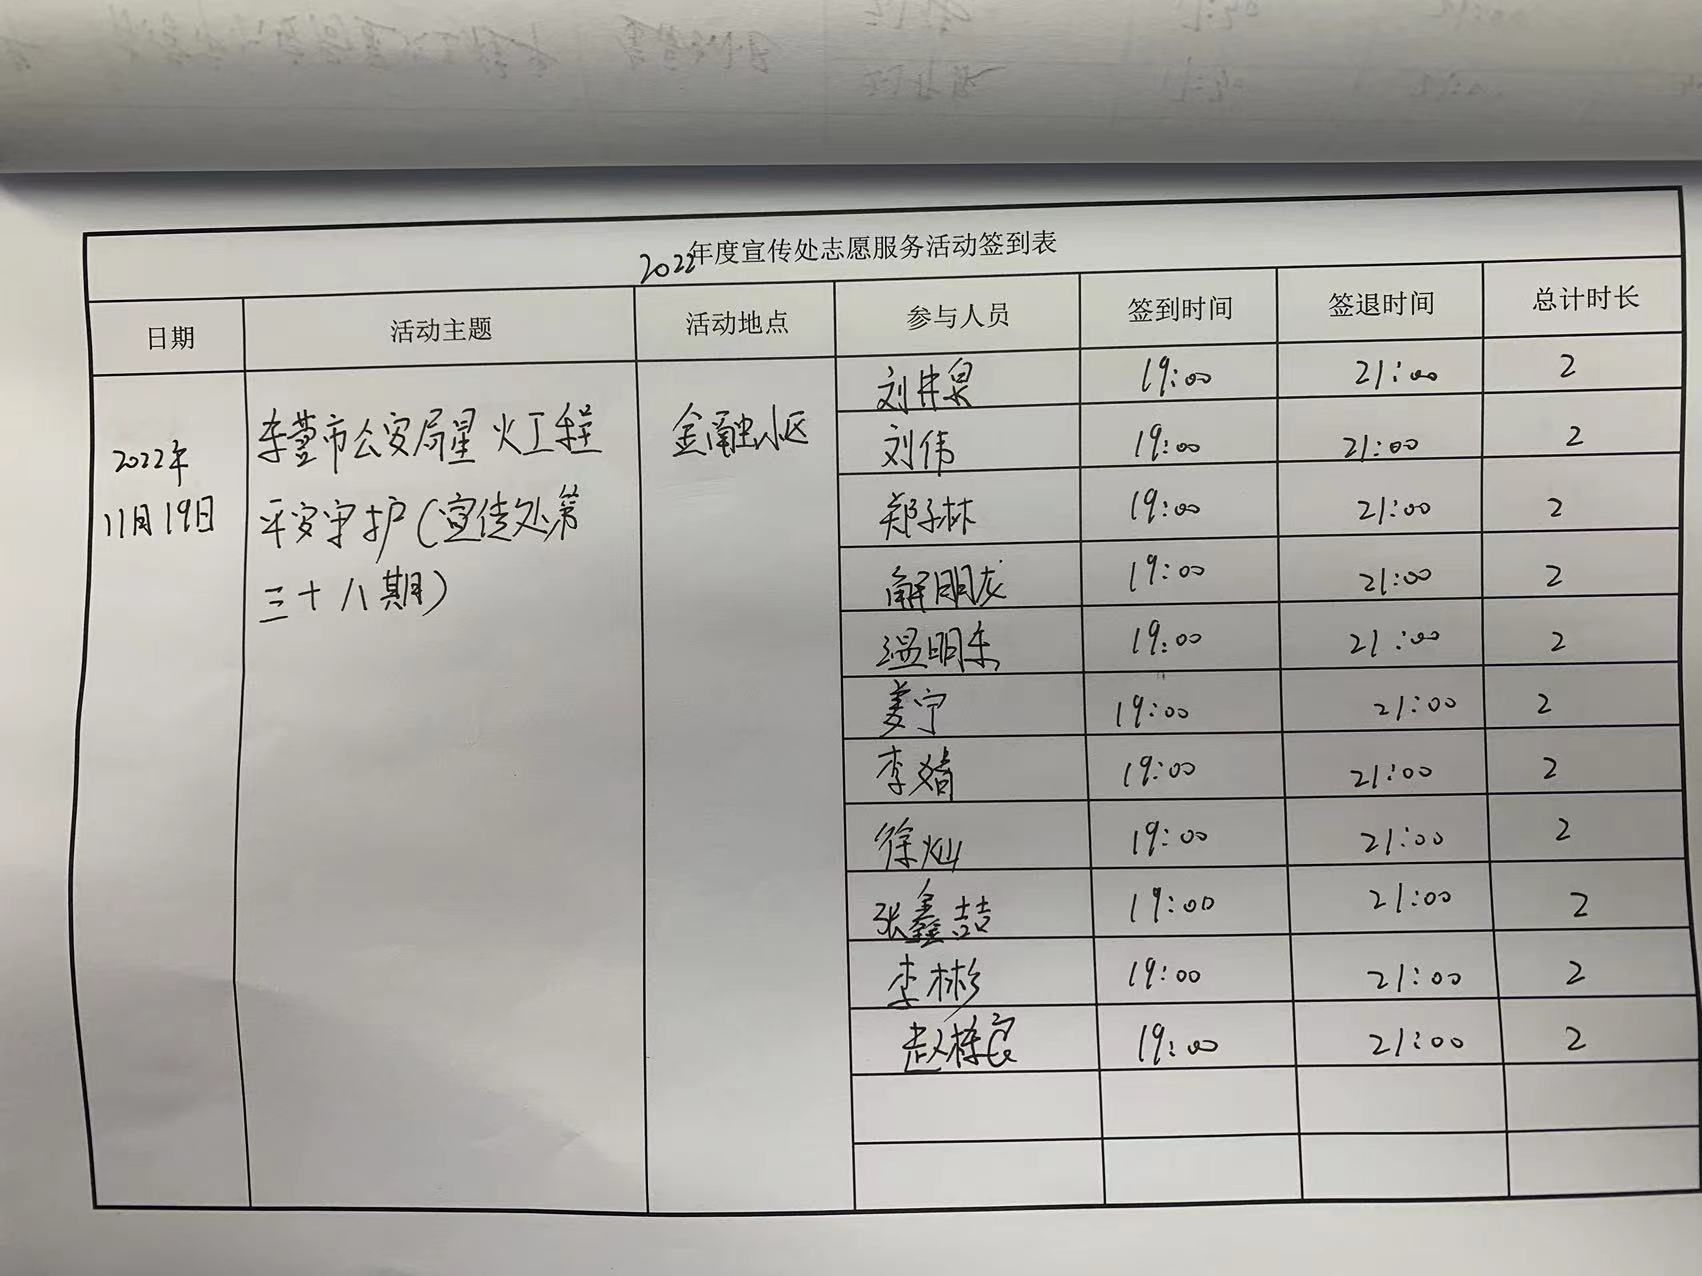 2022年度宣传处志愿服务活动签到表
日期 活动主题 活动地点 参与人员 签到时间 签退时间 总计时长
2022年
11月19日
东营市公安局星火工程
平安守护(宣传处第
三十八期)
金融小区
刘井泉 19:00 21:00 2
刘伟 19:00 21:00 2
郑子林 19:00 21:00 2
解明龙 19:00 21:00 2
温明东 19:00 21:00 2
姜宁 19:00 21:00 2
李婧 19:00 21:00 2
徐灿 19:00 21:00 2
张鑫喆 19:00 21:00 2
李彬 19:00 21:00 2
赵栋良 19:00 21:00 2